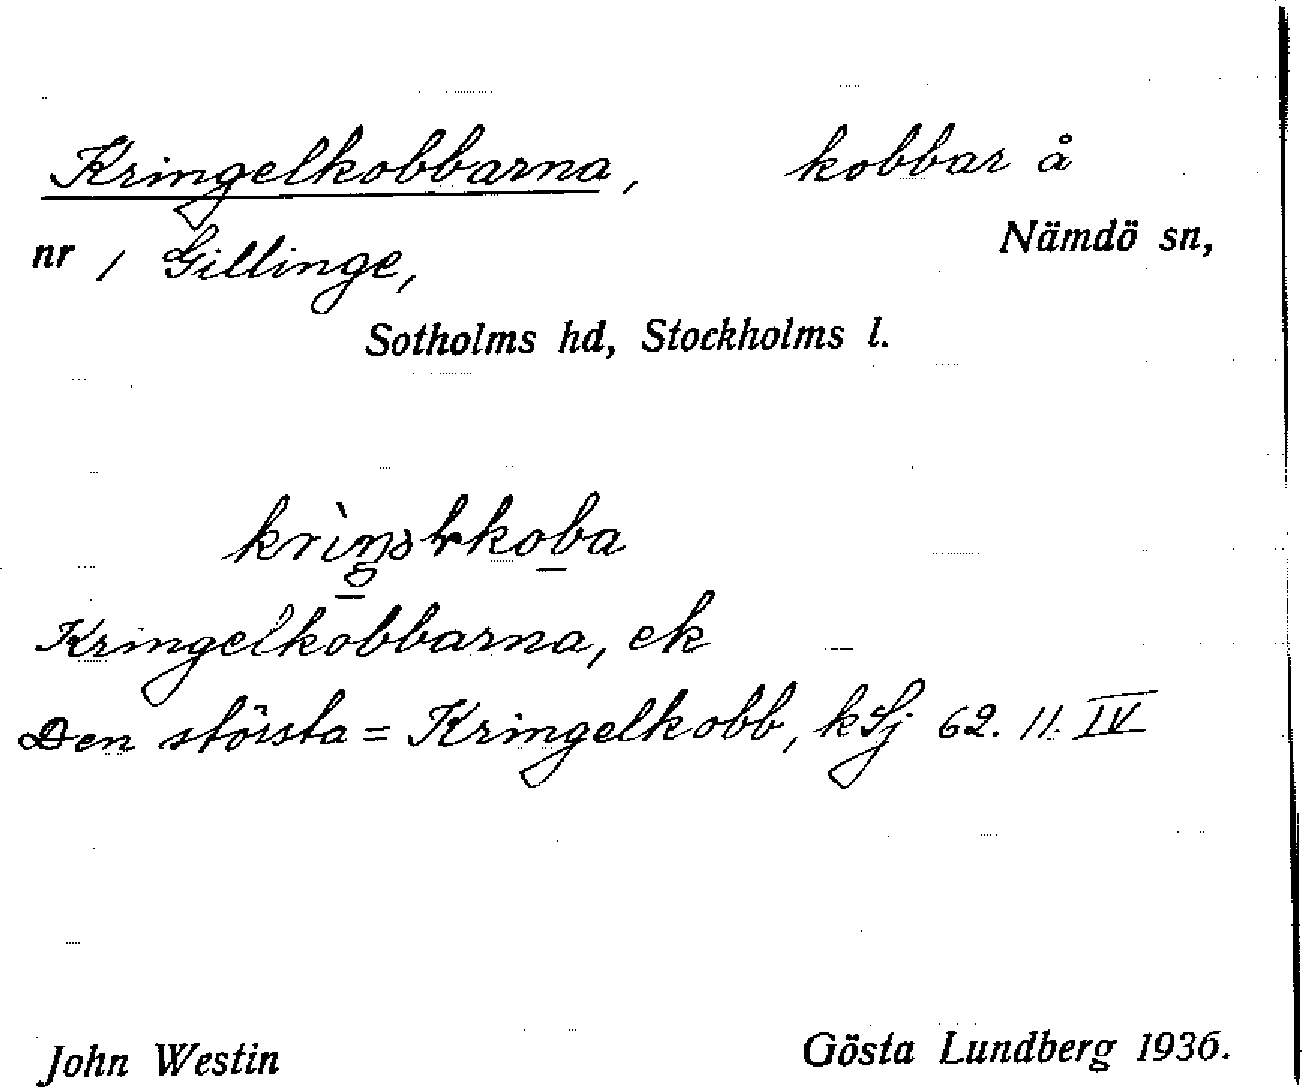 Kringelkobbarna, kobbar å
nr 1 Gillinge, Nämdö sn,
Sotholms hd, Stockholms l.
Kringelkobbarna, ek
Den största = Kringelkobb, kSj 62. 11. IV
John Westin Gösta Lundberg 1936.